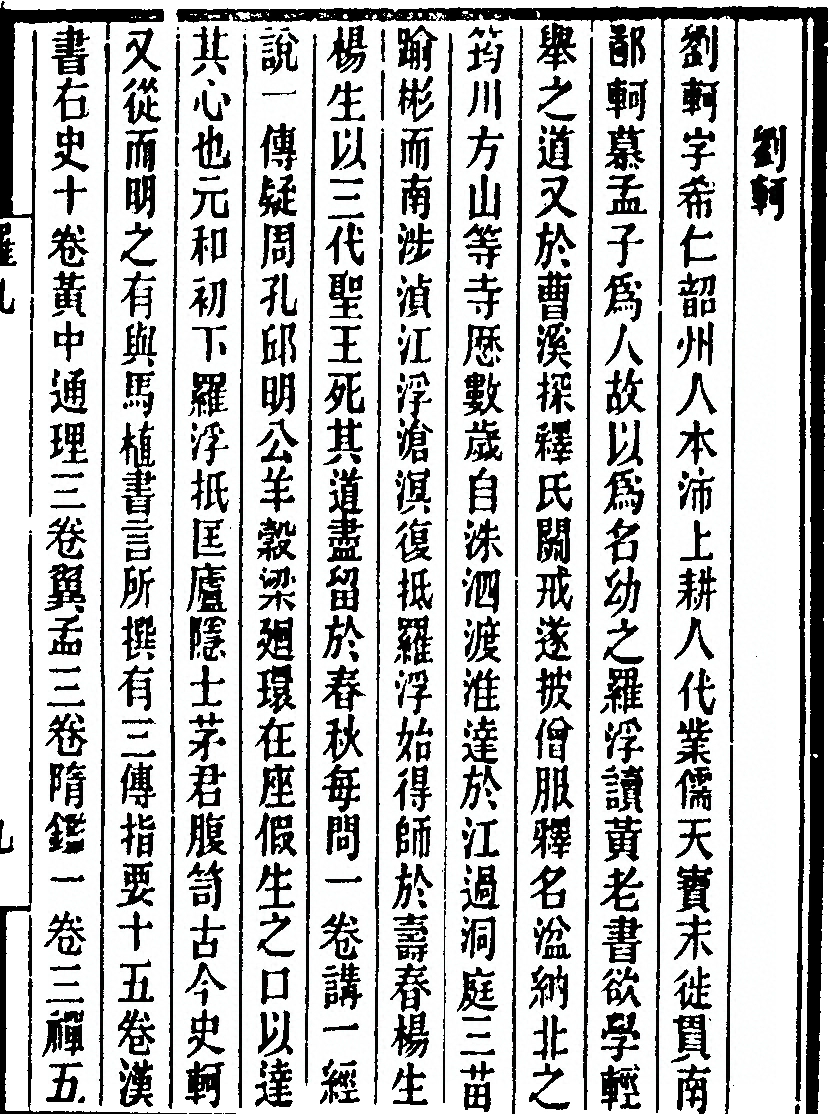 劉軻
劉軻字希仁韶州人本沛上耕人代業儒天寶末徙貫南
鄙軻慕孟子爲人故以爲名幼之羅浮讀黃老書欲學輕
舉之道又於曹溪探釋氏關戒遂披僧服釋名湓納北之
筠川方山等寺歷數歲自洙泗渡淮達於江過洞庭三苗
踰彬而南涉湞江浮滄溟復抵羅浮始得師於壽春楊生
楊生以三代聖王死其道盡留於春秋每問一卷講一經
說一傳疑周孔邱明公羊穀梁廻環在座假生之口以達
其心也元和初下羅浮抵匡廬隱士茅君腹笥古今史軻
又從而明之有與馬植書言所撰有三傳指要十五卷漢
書右史十卷黃中通理三卷翼孟三卷隋鑑一卷三禪五